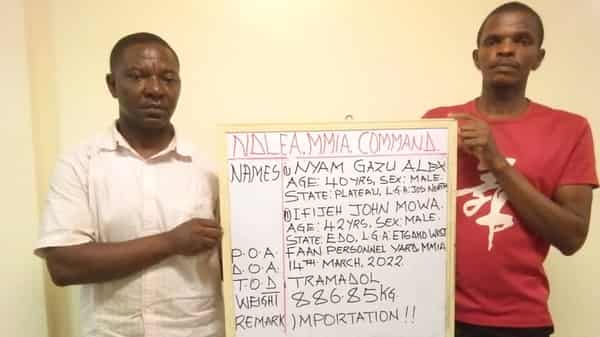 NDLEA. MMIA COMMAND.
NAMES i) NYAM GAZU ALEX
AGE: 40 YRS, SEX: MALE.
STATE: PLATEAU, L.G.A: JOS NORTH
ii) IFIJEH JOHN MOWA.
AGE: 42 YRS, SEX: MALE.
STATE: EDO, L.G.A: ETSAKO WEST
P.O.A: FAAN PERSONNEL YARD MMIA
D.O.A: 14TH MARCH, 2022.
T.O.D TRAMADOL
WEIGHT 886.85KG
REMARK IMPORTATION!!